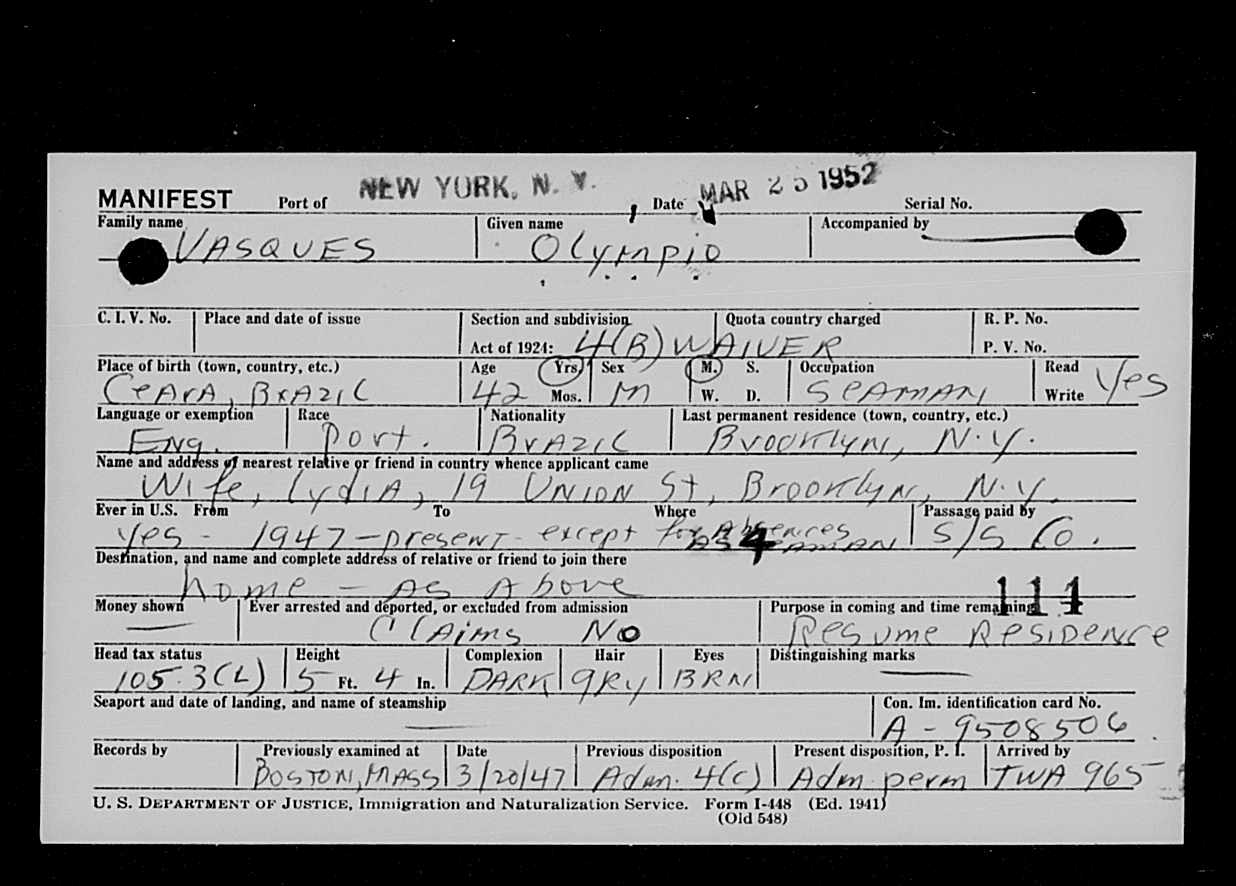 MANIFEST Port of NEW YORK, N. Y. Date MAR 25 1952 Serial No.
Family name Given name Accompanied by
VASQUES Olympio
C. I. V. No. Place and date of issue Section and subdivision Quota country charged R. P. No.
Act of 1924: 4(B) WAIVER P. V. No.
Place of birth (town, country, etc.) Age Yrs. Sex M. S. Occupation Read
CeArA, BrAzil 42 Mos. M W. D. SEAMAN Write Yes
Language or exemption Race Nationality Last permanent residence (town, country, etc.)
Eng. Port. BrAzil Brooklyn, N.Y.
Name and address of nearest relative or friend in country whence applicant came
Wife, LydiA, 19 UNION St, Brooklyn, N.Y.
Ever in U.S. From To Where Passage paid by
Yes - 1947 - present - except for Absences S/S Co.
AS SEAMAN
4
Destination, and name and complete address of relative or friend to join there
home - AS Above
111
Money shown Ever arrested and deported, or excluded from admission Purpose in coming and time remaining
ClAims No Resume Residence
Head tax status Height Complexion Hair Eyes Distinguishing marks
105.3(L) 5 Ft. 4 In. DARK gRy BRN
Seaport and date of landing, and name of steamship Con. Im. identification card No.
A-9508506
Records by Previously examined at Date Previous disposition Present disposition, P. I. Arrived by
Boston, MASS 3/20/47 Adm. 4(c) Adm perm TWA 965
U. S. DEPARTMENT OF JUSTICE, Immigration and Naturalization Service. Form I-448 (Ed. 1941)
(Old 548)